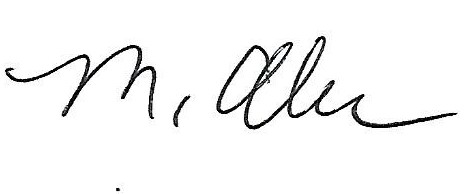 M. Allen